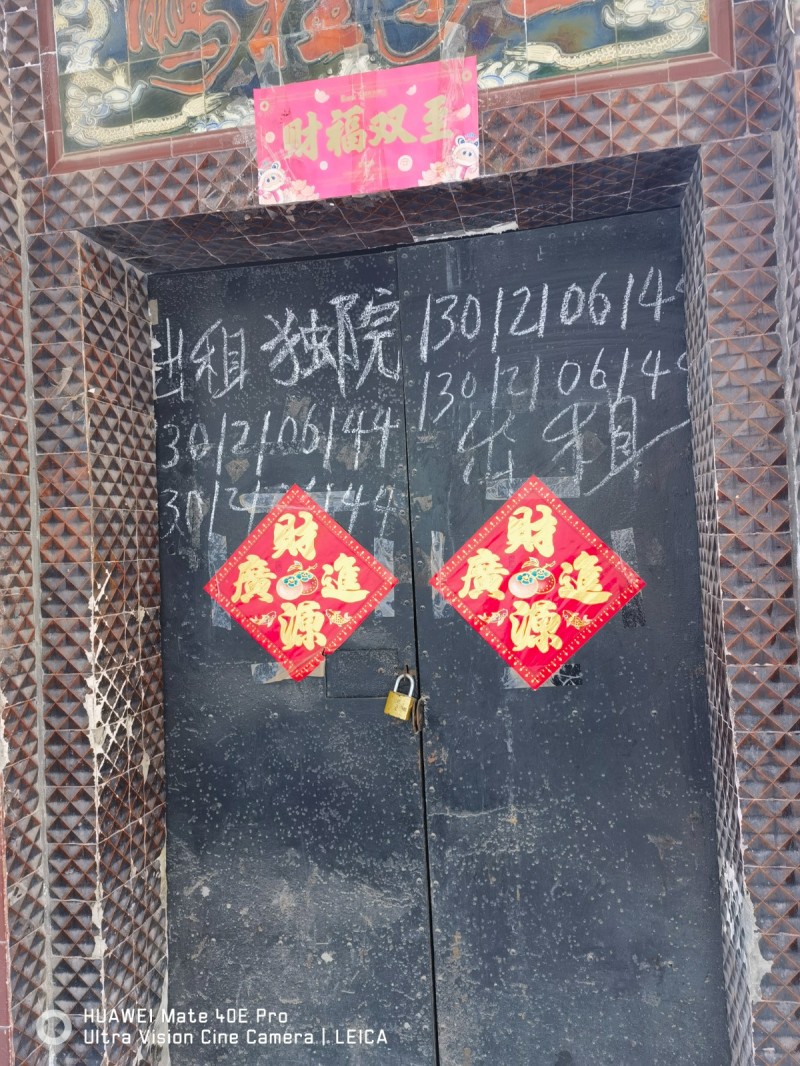 财福双至
出租 独院 13012106144
3012106144 13012106144
出租
財源廣進
財源廣進
HUAWEI Mate 40E Pro
Ultra Vision Cine Camera | LEICA